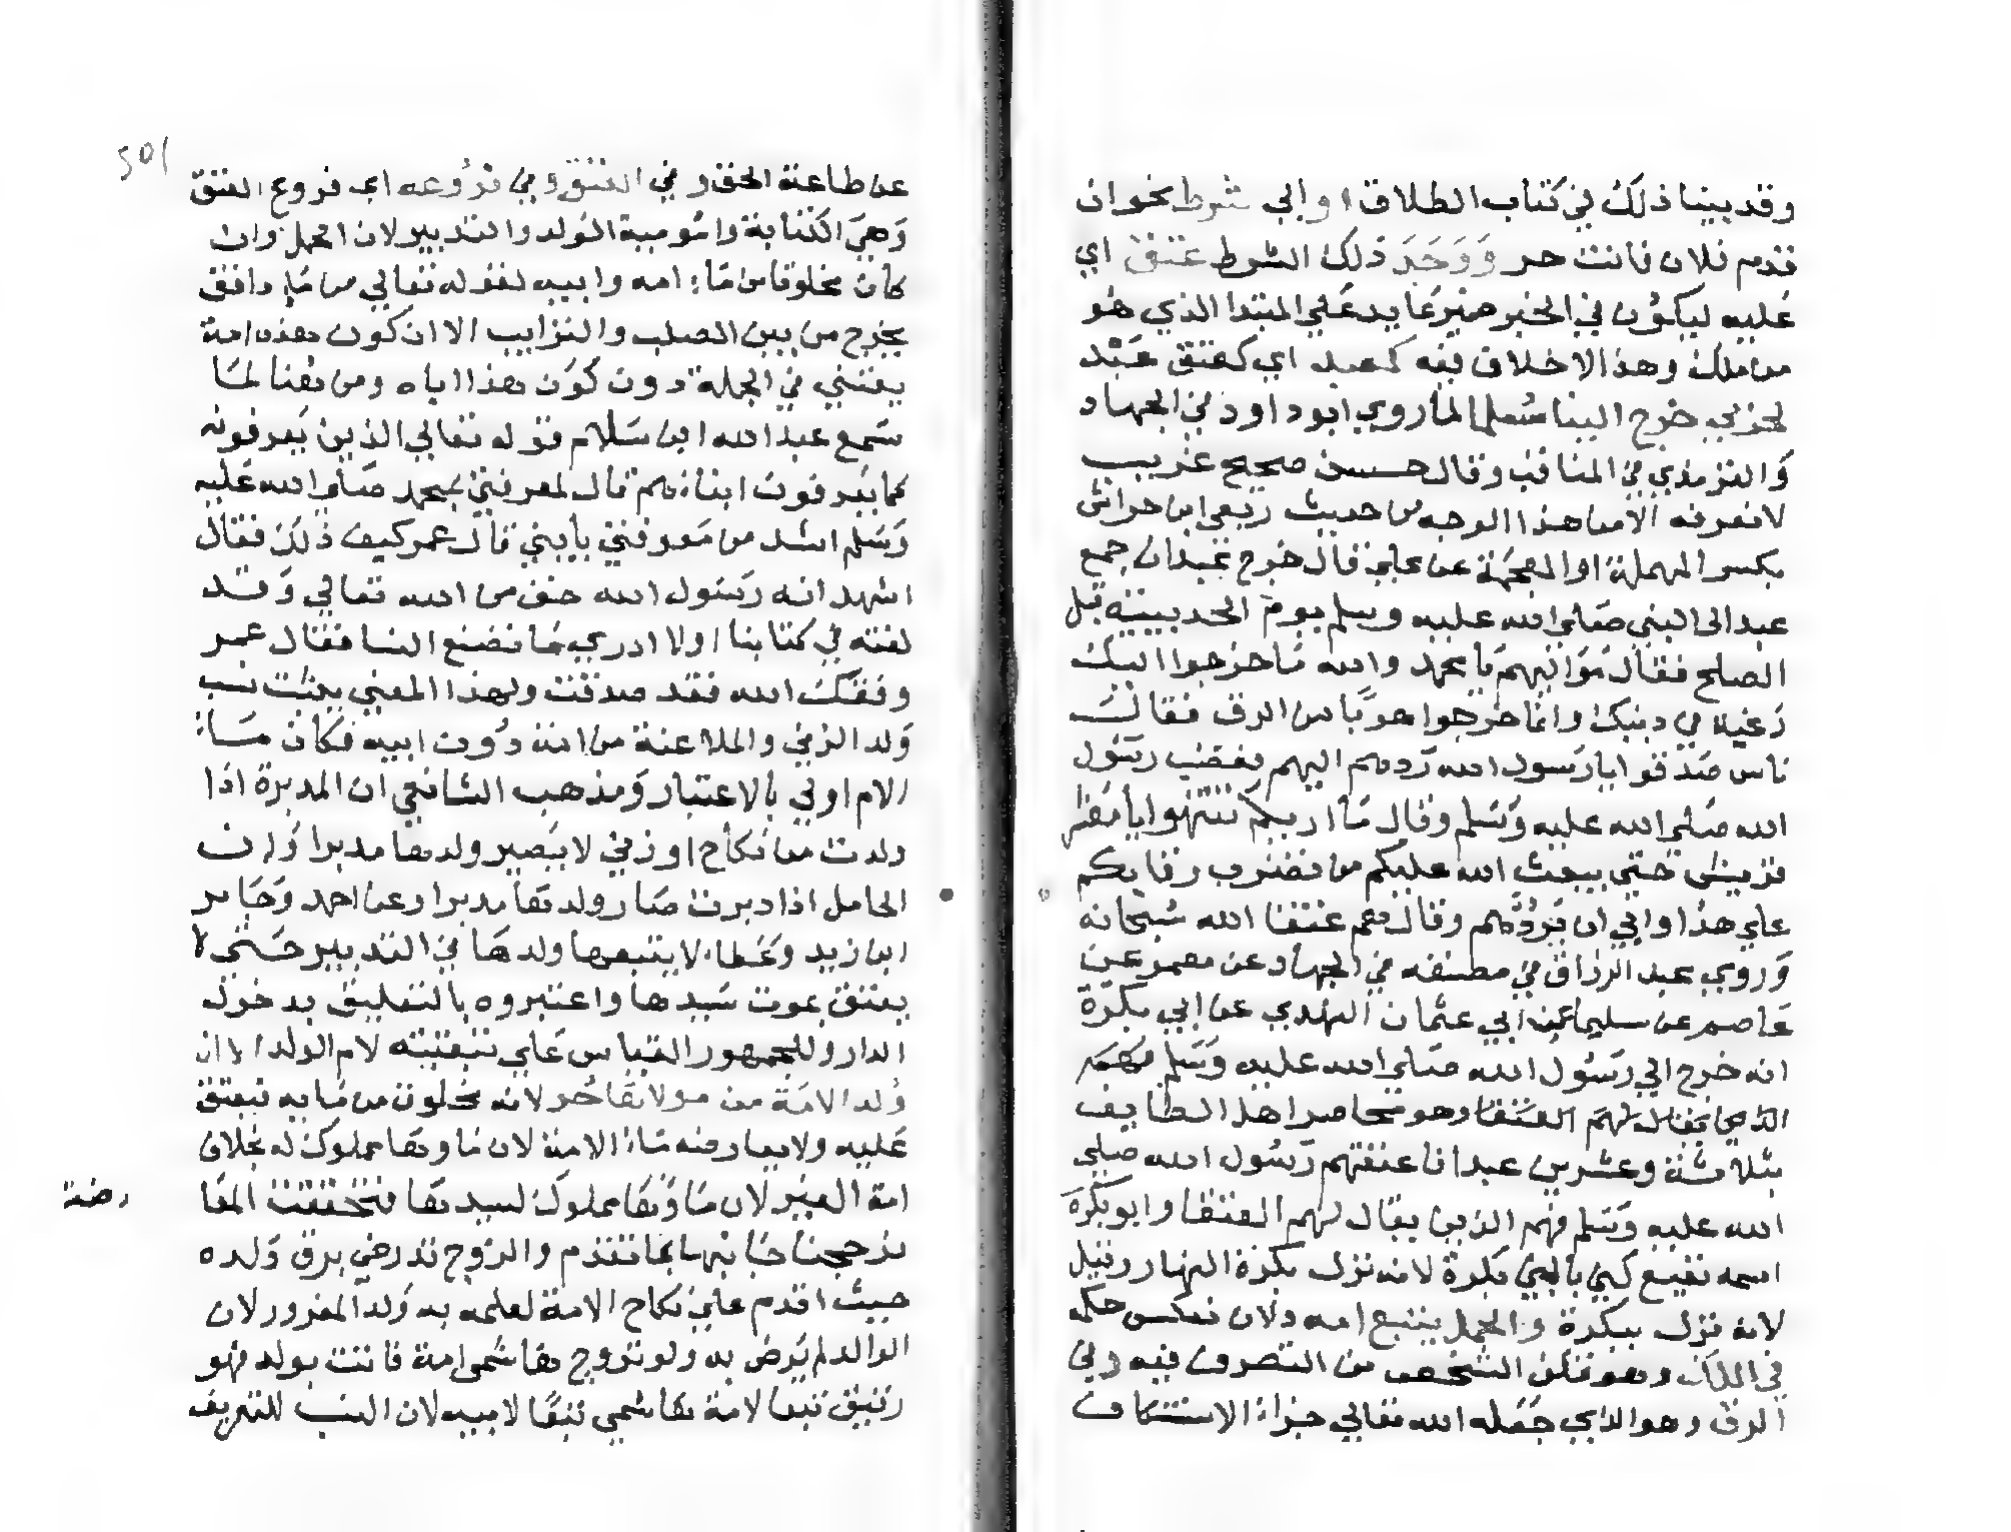 وقد بينا ذلك في كتاب الطلاق او الي شرط بخوان
قدم فلان فانت حر وَوَجَدَ ذلك الشرط عتق اي
عَليه ليكون في الخبر ضميرعَايد عَلي المبتدا الذي هُو
من ملك وهذا الاخلاق فيه كعبد اي كعتق عَبْد
لحزبي خرج الينا مُسلما لما روي ابوداود في الجهاد
وَالترمذي في المناقب وقال حسن صحيح غريب
لا نعرفه الا من هذا الوجه من حديث ربعي ابن حراش
بكسر المهملة او المعجمة عن علي قال خرج عبدان جمع
عبد الى النبي صَلي الله عليه وسلم يومَ الحديبية قبل
الصلح فقال مَوَاليهم يا محمد والله مَا خرجوا اليك
رَغبة في دينك وانما خرجوا هربًا من الرق فقالـــ
ناس صَدقوا يا رَسول الله رَدهم اليهم فغضب رسَول
الله صَلي الله عليه وَسَلم وقال مَا اريكم تنتهوا يا مَعشر
قريش حَتي يبعث الله عليكم من يضرب رقابكم
علي هذا وابي ان يَردُّهم وقال هم عتقا الله سُبحانه
وَروي عبد الرزاق في مصنفه في الجهاد عن معمر عن
عَاصم عن سليمان عن ابي عثمان النهدي عن ابي بكرَة
انه خرج الي رسَول الله صَلي الله عليه وَسَلم
الذين يقال لهم العتقا وهو محَاصر اهل الطايف
بثلاثة وعشرين عبدا فاعتقهم رسَول الله صلي
الله عليه وَسَلم فهم الذين يقال لهم العتقا وابو بكرَة
اسمه نفيع كني بابي بكرة لانه نزل بكرة النهار وقيل
لانه نزل ببكرة والحمل يتبع امه ولان نفس حكمه
في الملك وهو تمكن الشخص من التصرف فيه وفي
الرق وهو الذي جَعَله الله تعالي جزاءُ الاستنكاف
501
عن طاعة الحق وفي العتق وفي فرُوعه اي فروع العتق
وَهيَ الكتابة وامُومية الوَلد والتدبير لان الحمل وان
كانَ مخلوقا من مَاء امه وابيه لقوله تعَالي من مَاء دافق
يخرج من بين الصلب والترايب الا ان كون هذه امهُ
يقيني في الجملة دون كوَن هذا اباه ومن هُنا لمَا
سَمع عبد الله ابن سَلام قوله تعَالي الذين يَعرفونه
كما يَعرفون ابناءَهم قال لمعرفتي بمحمد صَلي الله عَليه
وَسَلم اشد من مَعرفتي بابني قال عمر كيف ذلك فقال
اشهد انه رَسَول الله حق من الله تعَالي وَقد
نعته في كتابنا اولا ادري مَا تصنع النسا فقال عمر
وفقك الله فقد صدقت ولهذا المعني يثبت نسب
وَلد الزني والملاعنة من امه دُون ابيه فكَانَ مَـاء
الام اولي بالاعتبار وَمذهب الشافعي ان المدبرة اذا
ولدت من نكاح او زني لا يَصير ولدها مدبرا وَان
الحامل اذا دبرت صَار ولدها مدبرا وعن احمد وَجَابر
ابن زيد وَعَطاء لا يتبعها ولدهَا في التدبير حَتي لا
يعتق بموت سَيدها واعتبروه بالتعليق بدخول
الدار وللجمهور القياس عَلي تبعيته لام الولد الا ان
وَلد الامَة من مَولاهَا حُر لانه مخلوق من مَايه فيعتق
عَليه ولا يعارضه مَاءُ الامة لان مَاوها مملوك له بخلاف
امة الغير لان مَاوُها مملوك لسيدها فتحققت المعَا
رضة
فرجحنا جَانبها بما تقدم والزوج قد رضي برق وَلده
حيث اقدم علي نكاح الامة لعلمه به وَلد المغرور لان
الوالد لم يَرض به ولو تزوج هَاشمي امة فاتت بولد فهو
رقيق تبعا لامة هَاشمي تبعًا لابيه لان النسب للتعريف